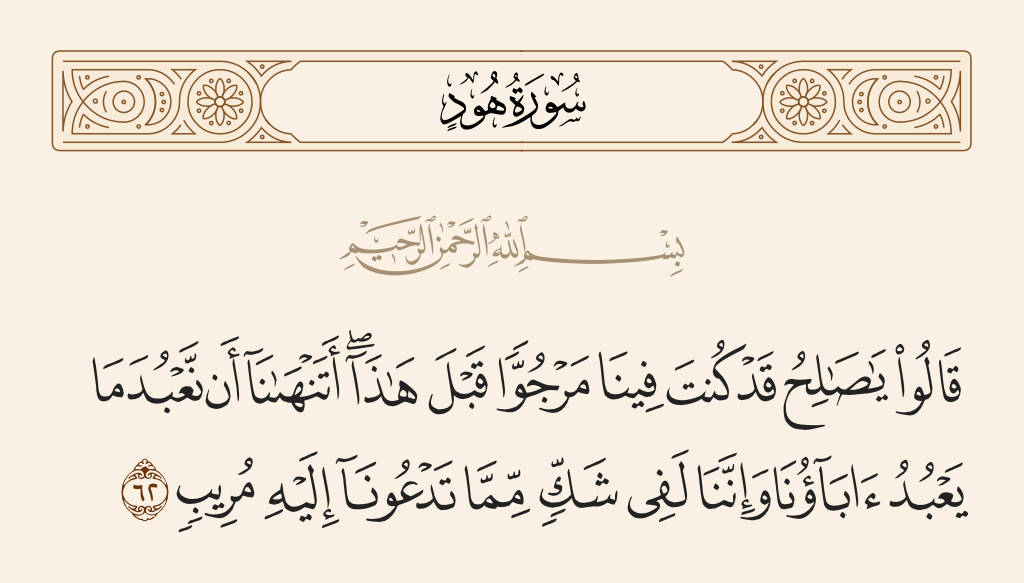 سُورَةُ هُودٍ
بِسْمِ ٱللَّهِ ٱلرَّحْمَٰنِ ٱلرَّحِيمِ
قَالُوا۟ يَٰصَٰلِحُ قَدْ كُنتَ فِينَا مَرْجُوًّا قَبْلَ هَٰذَآ ۖ أَتَنْهَىٰنَآ أَن نَّعْبُدَ مَا
يَعْبُدُ ءَابَآؤُنَا وَإِنَّنَا لَفِى شَكٍّ مِّمَّا تَدْعُونَآ إِلَيْهِ مُرِيبٍ ٦٢